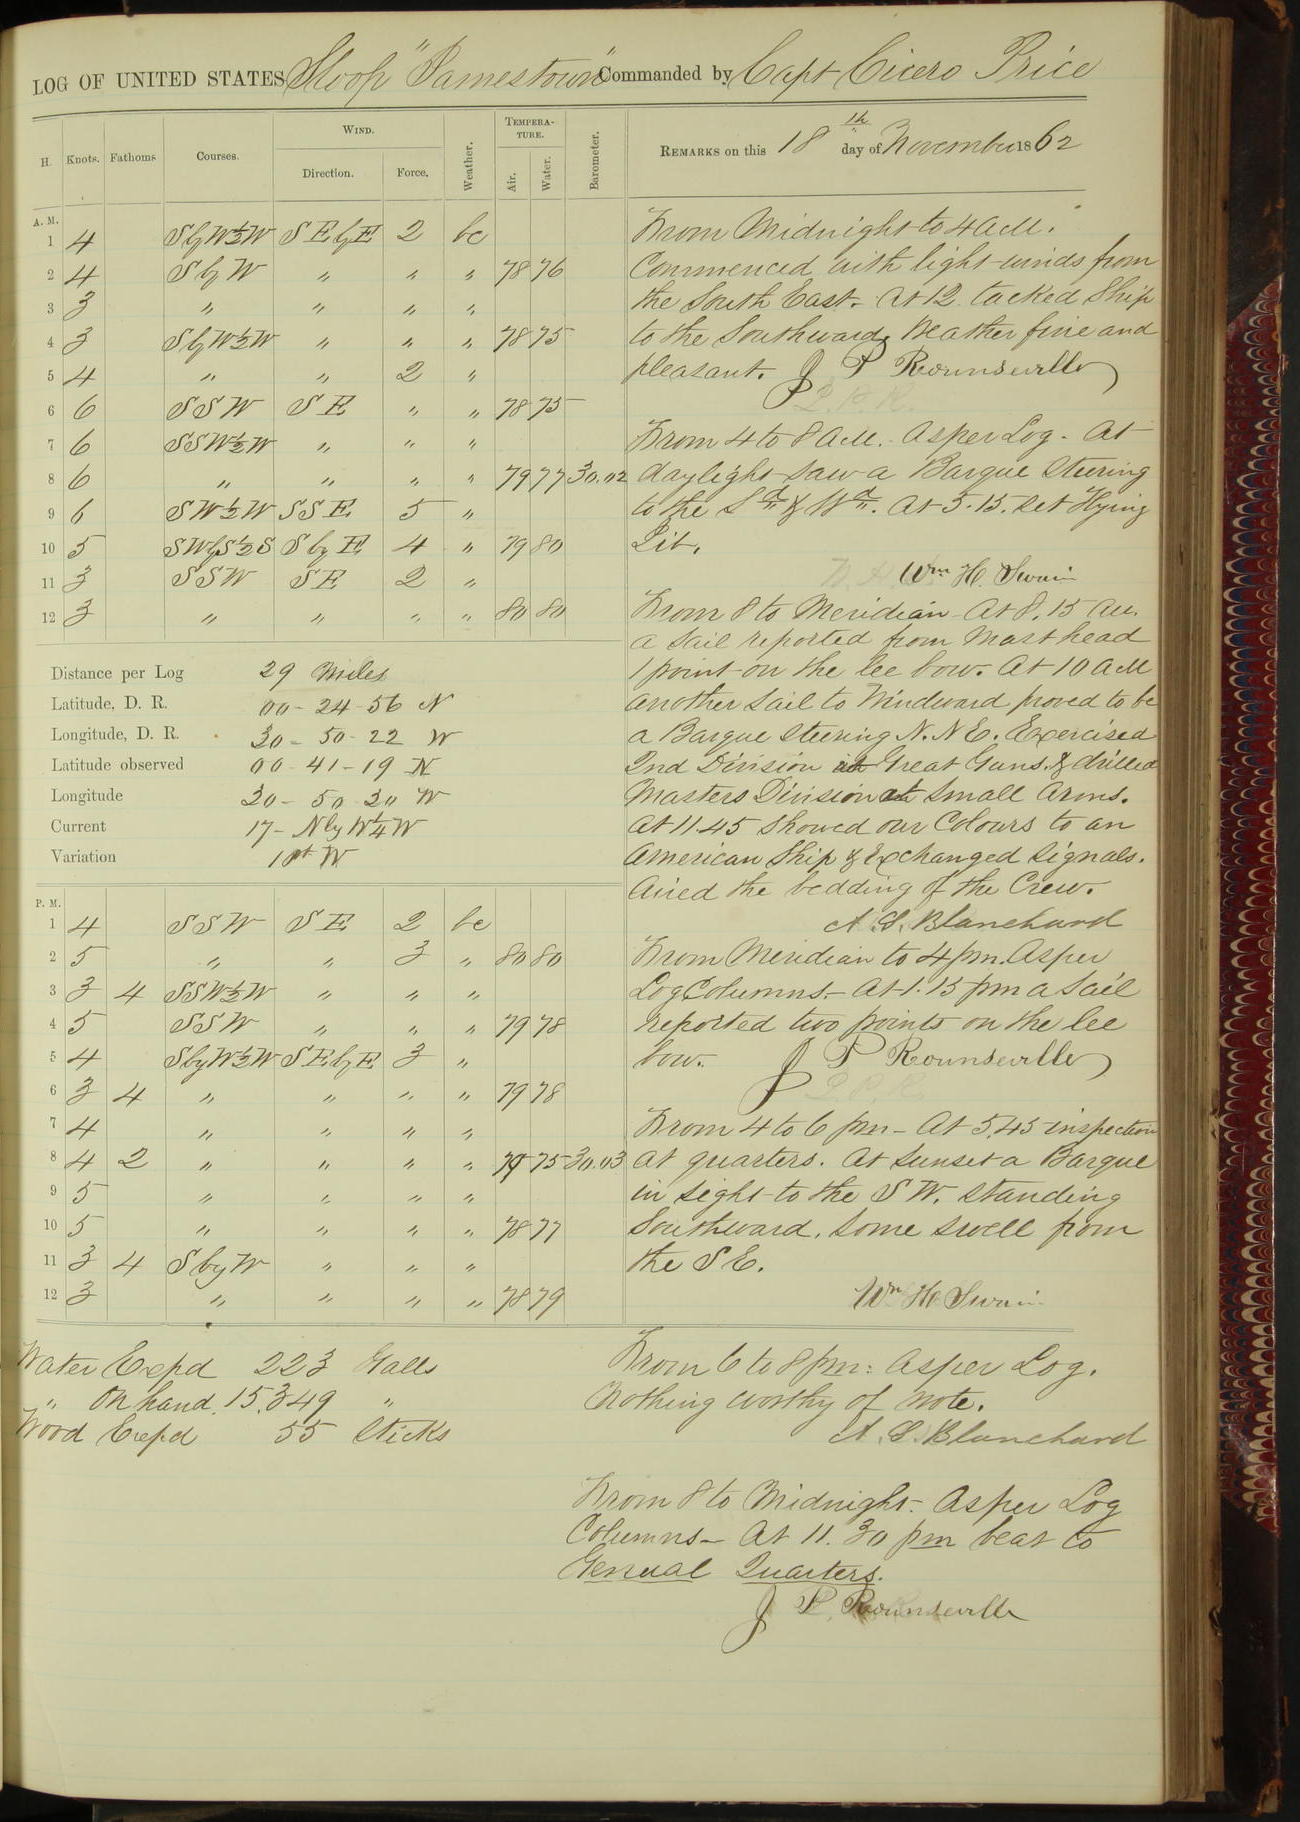 LOG OF UNITED STATES Sloop "Jamestown" Commanded by Capt Cicero Price
H. Knots. Fathoms Courses. WIND. Direction. Force. Weather. TEMPERATURE. Air. Water. Barometer. REMARKS on this 18th day of November 1862
A. M.
1 4 SbyW½W SEbyE 2 bc
2 4 SbyW " " " 78 76
3 3 " " " "
4 3 SbyW½W " " " 78 75
5 4 " " 2 "
6 6 SSW SE " " 78 75
7 6 SSW½W " " "
8 6 " " " " 79 77 30.02
9 6 SW½W SSE 5 "
10 5 SWbyS½S SbyE 4 " 79 80
11 3 SSW SE 2 "
12 3 " " " " 80 80
Distance per Log 29 Miles
Latitude, D. R. 00-24-56 N
Longitude, D. R. 30-50-22 W
Latitude observed 00-41-19 N
Longitude 30-50-30 W
Current 17- NbyW¼W
Variation 1pt W
P. M.
1 4 SSW SE 2 bc
2 5 " " 3 " 80 80
3 3 4 SSW½W " " "
4 5 SSW " " " 79 78
5 4 SbyW½W SEbyE 3 "
6 3 4 " " " " 79 78
7 4 " " " "
8 4 2 " " " " 79 75 30.03
9 5 " " " "
10 5 " " " " 78 77
11 3 4 SbyW " " "
12 3 " " " " 78 79
Water Expd 223 Galls
" On hand 15,349 "
Wood Expd 55 Sticks
From Midnight to 4 AM.
Commenced with light winds from
the South East. At 12 tacked Ship
to the Southward. Weather fine and
pleasant. J P Rounseville
From 4 to 8 AM. As per Log. At
daylight saw a Barque steering
to the Sd & Wd. At 5.15. set Flying
Jib.
Wm H. Swain
From 8 to Meridian At 8.15 AM.
a sail reported from Mast head
1 point on the lee bow. At 10 AM
another sail to Windward proved to be
a Barque steering N.NE. Exercised
2nd Division at Great Guns & drilled
Masters Division at Small Arms.
At 11.45 showed our Colours to an
American Ship & Exchanged Signals.
Aired the bedding of the Crew.
A. S. Blanchard
From Meridian to 4 pm. As per
Log Columns- At 1.15 pm a Sail
reported two points on the lee
bow. J P Rounseville
From 4 to 6 pm- At 5.45 inspection
at quarters. At sunset a Barque
in sight to the SW. standing
Southward. Some swell from
the SE.
Wm H Swain
From 6 to 8 pm: As per Log.
Nothing worthy of note.
A. S. Blanchard
From 8 to Midnight- As per Log
Columns- At 11.30 pm beat to
General Quarters.
J P Rounseville